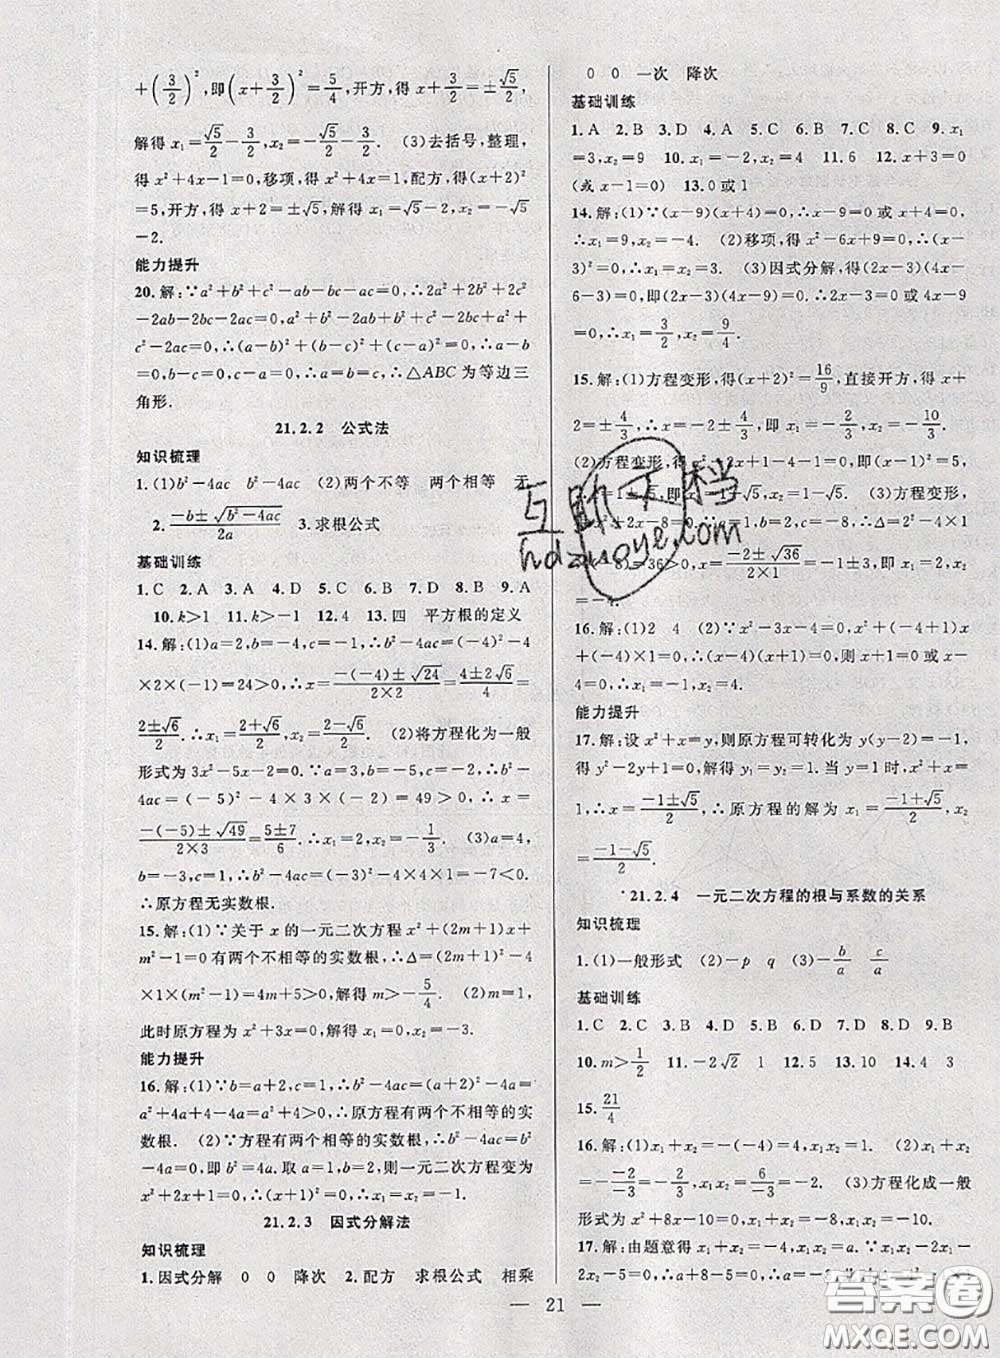 +(3/2)²,即(x+3/2)²=5/4,开方,得 x+3/2=±√5/2,
解得 x₁=√5/2-3/2,x₂=-√5/2-3/2. (3)去括号,整理,
得 x²+4x-1=0,移项,得 x²+4x=1,配方,得(x+2)²
=5,开方,得 x+2=±√5,解得 x₁=√5-2,x₂=-√5
-2.
能力提升
20.解:∵a²+b²+c²-ab-bc-ac=0,∴2a²+2b²+2c²
-2ab-2bc-2ac=0,a²+b²-2ab+b²+c²-2bc+a²+
c²-2ac=0,∴(a-b)²+(b-c)²+(c-a)²=0,∴a-b
=0,b-c=0,c-a=0,∴a=b=c,∴△ABC 为等边三
角形.
21.2.2 公式法
知识梳理
1.(1)b²-4ac b²-4ac (2)两个不等 两个相等 无
2.(-b±√(b²-4ac))/2a 3.求根公式
基础训练
1.C 2.A 3.B 4.D 5.D 6.C 7.B 8.B 9.A
10.k>1 11.k>-1 12.4 13.四 平方根的定义
14.解:(1)a=2,b=-4,c=-1,∴b²-4ac=(-4)²-4
×2×(-1)=24>0,∴x=(-(-4)±√24)/(2×2)=(4±2√6)/4=
(2±√6)/2.∴x₁=(2+√6)/2,x₂=(2-√6)/2. (2)将方程化为一般
形式为 3x²-5x-2=0.∵a=3,b=-5,c=-2,∴b²-
4ac=(-5)²-4×3×(-2)=49>0,∴x=
(-(-5)±√49)/(2×3)=(5±7)/6.∴x₁=2,x₂=-1/3. (3)a=4,
b=-3,c=1,∴b²-4ac=(-3)²-4×4×1=-7<0.
∴原方程无实数根.
15.解:(1)∵关于 x 的一元二次方程 x²+(2m+1)x+
m²-1=0 有两个不相等的实数根,∴Δ=(2m+1)²-
4×1×(m²-1)=4m+5>0,解得 m>-5/4. (2)m=1,
此时原方程为 x²+3x=0,解得 x₁=0,x₂=-3.
能力提升
16.解:(1)∵b=a+2,∴b²-4ac=(a+2)²-4a=
a²+4a+4-4a=a²+4>0,∴原方程有两个不相等的实
数根. (2)∵方程有两个相等的实数根,∴b²-4ac=b²-
4a=0,即 b²=4a.取 a=1,b=2,则一元二次方程变为
x²+2x+1=0,∴(x+1)²=0,∴x₁=x₂=-1.
21.2.3 因式分解法
知识梳理
1.因式分解 0 0 降次 2.配方 求根公式 相乘
0 0 一次 降次
基础训练
1.A 2.B 3.D 4.A 5.C 6.B 7.C 8.C 9.x₁
=3,x₂=9 10.x₁=-2,x₂=4 11.6 12.x+3=0
(或 x-1=0) 13.0或1
14.解:(1)∵(x-9)(x+4)=0,∴x-9=0 或 x+4=0,
∴x₁=9,x₂=-4. (2)移项,得 x²-6x+9=0,∴(x-
3)²=0,∴x₁=x₂=3. (3)因式分解,得(4x-6-3)(4x-
6-3)=0,即(2x-3)(4x-9)=0,∴2x-3=0 或 4x-9
=0,∴x₁=3/2,x₂=9/4.
15.解:(1)方程变形,得(x+2)²=16/9,直接开方,得 x+
2=±4/3,∴x=-2±4/3,即 x₁=-2/3,x₂=-10/3.
(2)方程变形,得 x²-2x+1-4=0,即(x-1)²=5,
∴x-1=±√5,∴x₁=1+√5,x₂=1-√5. (3)方程变形,
得 x²+2x-8=0,∵a=1,b=2,c=-8,∴Δ=2²-4×
1×(-8)=36>0,x=(-2±√36)/(2×1)=-1±3,∴x₁=2,x₂
=-4.
16.解:(1)2 4 (2)∵x²-3x-4=0,x²+(-4+1)x
+(-4)×1=0,∴(x-4)(x+1)=0,则 x+1=0 或 x-
4=0,∴x₁=-1,x₂=4.
能力提升
17.解:设 x²+x=y,则原方程可转化为 y(y-2)=-1,
得 y²-2y+1=0,解得 y₁=y₂=1.当 y=1 时,x²+x=
1,∴x=(-1±√5)/2,∴原方程的解为 x₁=(-1+√5)/2,x₂
=(-1-√5)/2.
21.2.4 一元二次方程的根与系数的关系
知识梳理
1.(1)一般形式 (2)-p q (3)-b/a c/a
基础训练
1.C 2.C 3.B 4.D 5.D 6.B 7.D 8.D 9.B
10.m>1/2 11.-2√2 1 12.5 13.10 14.4 3
15.21/4
16.解:(1)x₁+x₂=-(-4)=4,x₁x₂=1. (2)x₁+x₂
=-(-2)/(-3)=-2/3,x₁x₂=6/(-3)=-2. (3)方程化成一般
形式为 x²+8x-10=0,x₁+x₂=-8,x₁x₂=-10.
17.解:由题意得 x₁+x₂=-4,x₁x₂=-5,∵x₁+x₂-
2x₁x₂-5=0,∴a+8-5=0,∴a²-2a-5=0,∴x₁=
— 21 —
互助文档
hdzuoye.com
答案圈
MXQE.COM